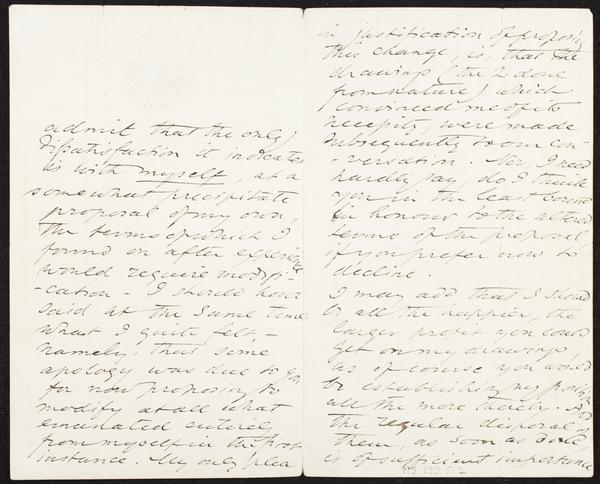 admit that the only
dissatisfaction it indicates
is with myself, at a
somewhat precipitate
proposal of my own,
the terms of which I
found on after experience
would require modifi-
-cation - I should have
said at the same time
what I quite felt, -
namely, that some
apology was due to you
for now proposing to
modify at all what
emanated entirely
from myself in the first
instance. My only plea
in justification of proposing
this change, is, that the
drawings (the 2 done
from nature) which
convinced me of its
necessity, were made
subsequently to our con-
-versation. Nor, I need
hardly say, do I think
you in the least bound
in honour to the altered
terms of the proposal
if you prefer now to
decline.
I may add that I should
be all the happier, the
larger profit you could
get on my drawings,
as of course you would
be establishing my position
all the more thereby. And
the regular disposal of
them, as soon as done,
is of sufficient importance
MS 230 5/2